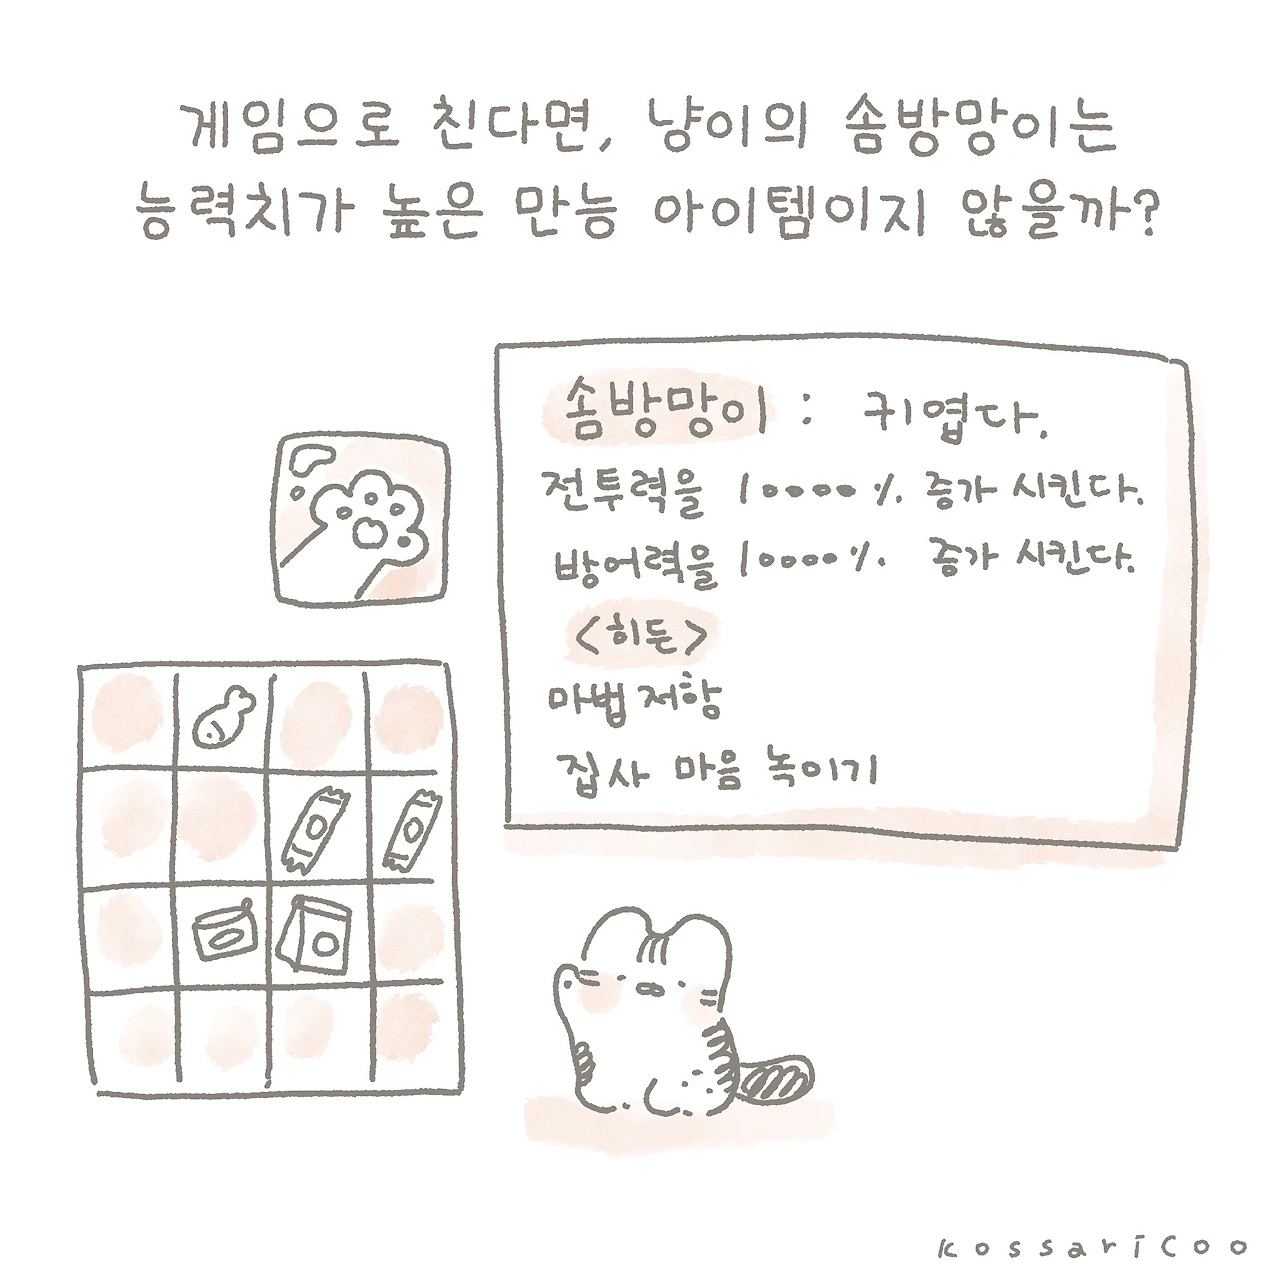 게임으로 친다면, 냥이의 솜방망이는
능력치가 높은 만능 아이템이지 않을까?
솜방망이 : 귀엽다.
전투력을 10000% 증가 시킨다.
방어력을 10000% 증가 시킨다.
<히든>
마법 저항
집사 마음 녹이기
kossaricoo